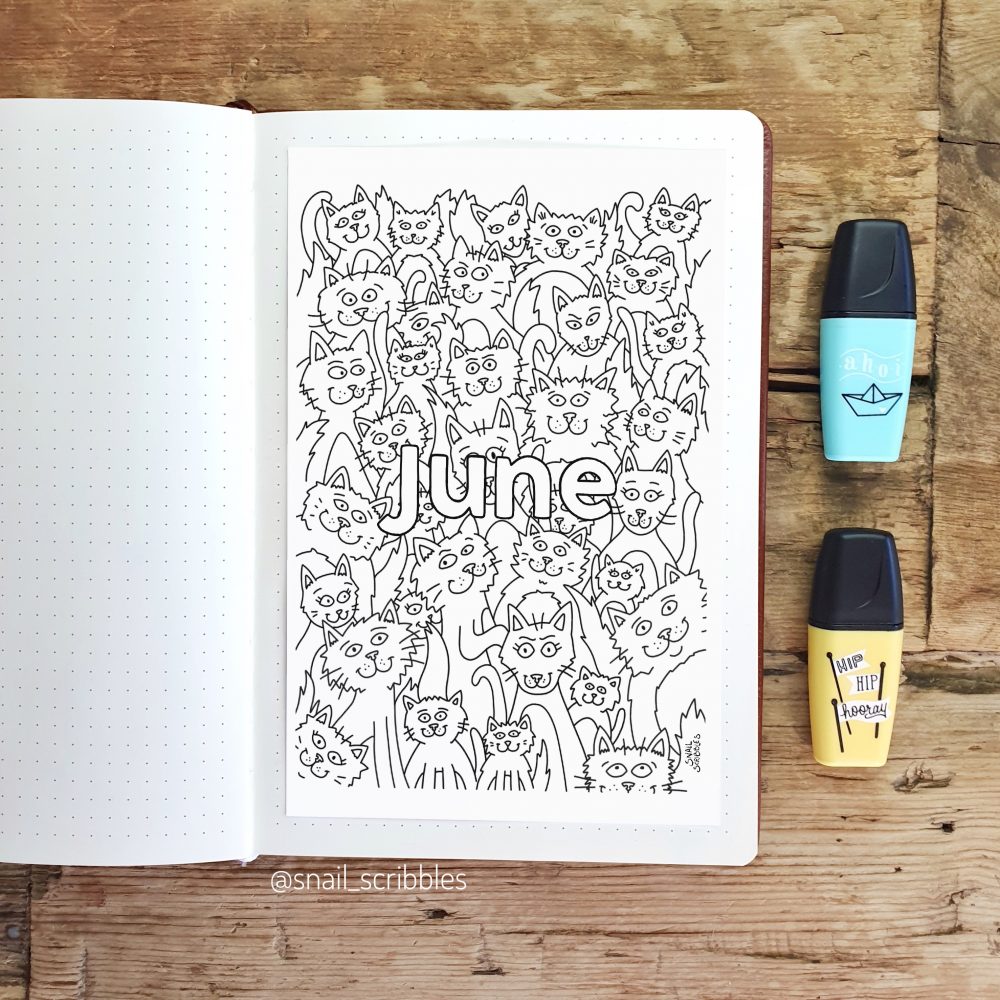 june
SNAIL
SCRIBBLES
ahoi
HIP
HIP
hooray
@snail_scribbles